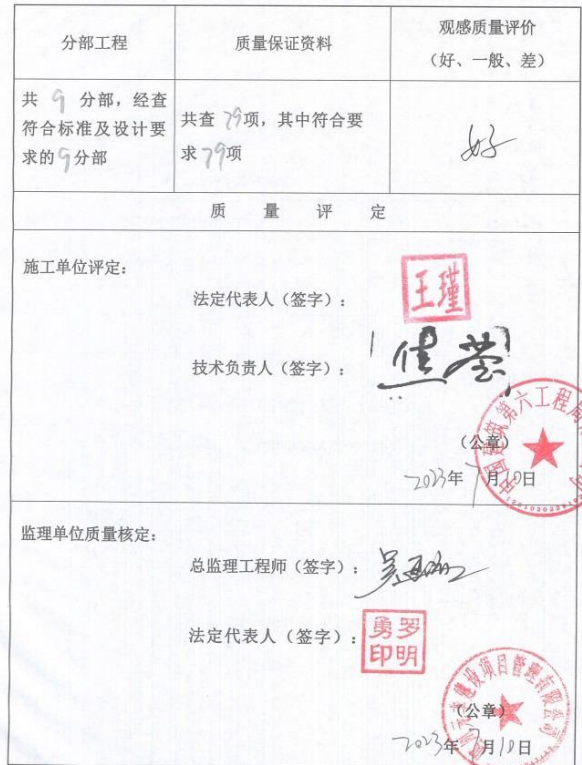 分部工程
质量保证资料
观感质量评价
（好、一般、差）
共 9 分部，经查
符合标准及设计要
求的9分部
共查 79项，其中符合要
求 79项
好
质 量 评 定
施工单位评定：
法定代表人（签字）：
王瑾
技术负责人（签字）：
（公章）
2023年7月10日
监理单位质量核定：
总监理工程师（签字）：
法定代表人（签字）：
罗明
勇印
（公章）
2023年7月10日